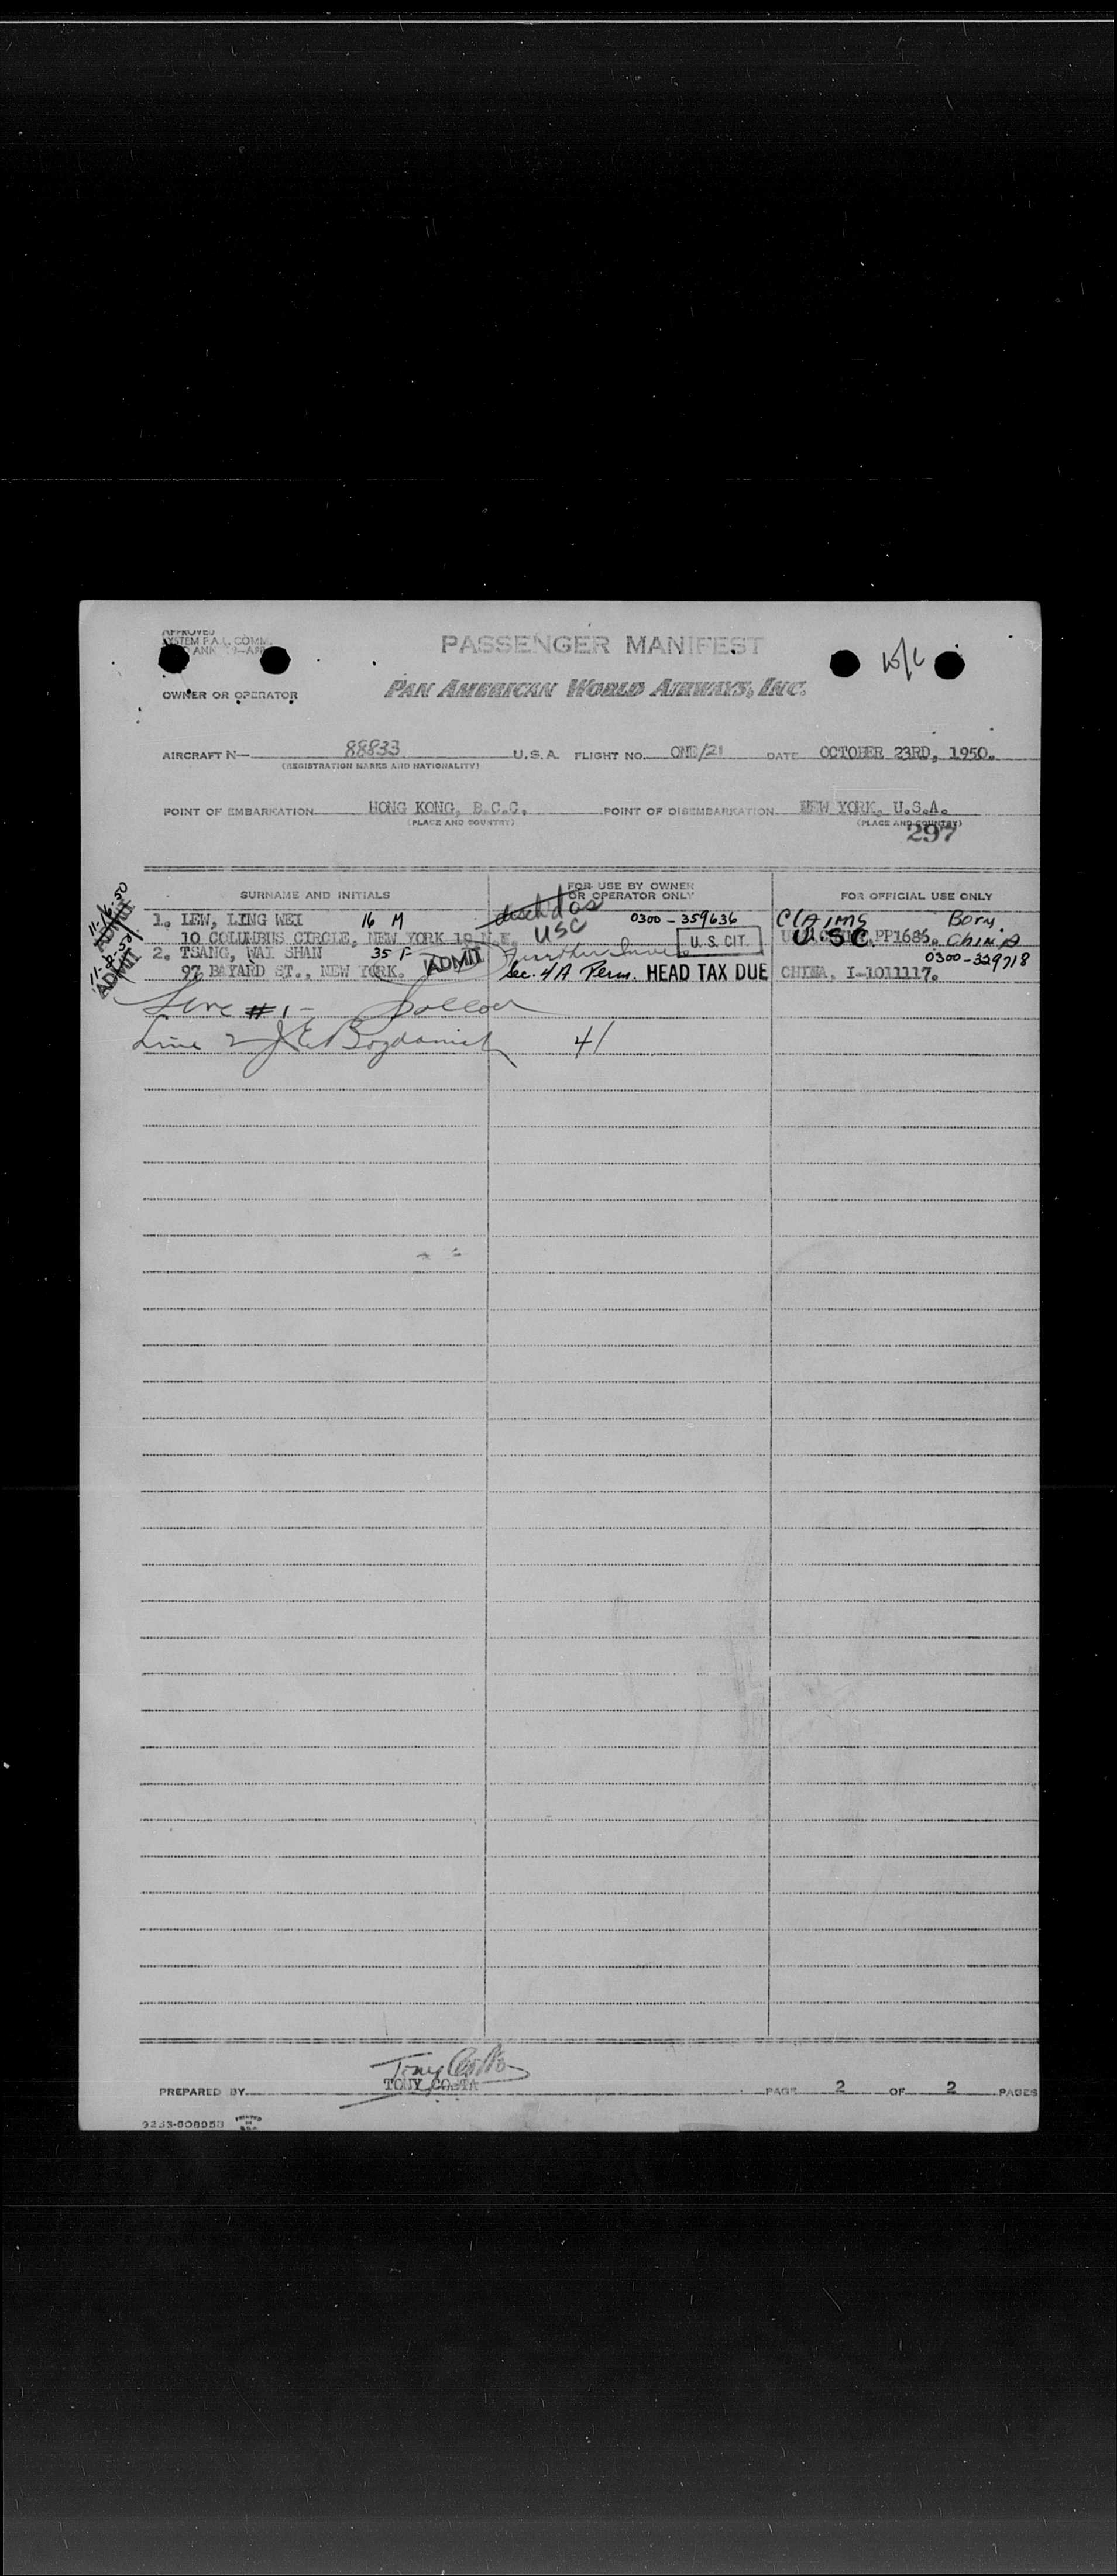 APPROVED
SYSTEM F.A.L. COMM.
PASSENGER MANIFEST
OWNER OR OPERATOR
PAN AMERICAN WORLD AIRWAYS, INC.
AIRCRAFT N— 88833 U.S.A. FLIGHT NO. ONE/21 DATE OCTOBER 23RD, 1950.
(REGISTRATION MARKS AND NATIONALITY)
POINT OF EMBARKATION HONG KONG, B.C.C. POINT OF DISEMBARKATION NEW YORK, U.S.A.
(PLACE AND COUNTRY) (PLACE AND COUNTRY)
297
SURNAME AND INITIALS FOR USE BY OWNER OR OPERATOR ONLY FOR OFFICIAL USE ONLY
1. LEW, LING WEI 16 M 0300-359636 CLAIMS Born.
10 COLUMBUS CIRCLE, NEW YORK USC U.S. CIT. USC PP1686. China
2. TSANG, WAI SHAN 35 F ADMIT 0300-329718
97 BAYARD ST., NEW YORK. Sec. 4A Perm. HEAD TAX DUE CHINA, I-1011117.
11-16-50
ADMIT
11-8-50
ADMIT
Line #1-
Line 2 41
PREPARED BY TONY COSTA PAGE 2 OF 2 PAGES
PRINTED IN U.S.A.